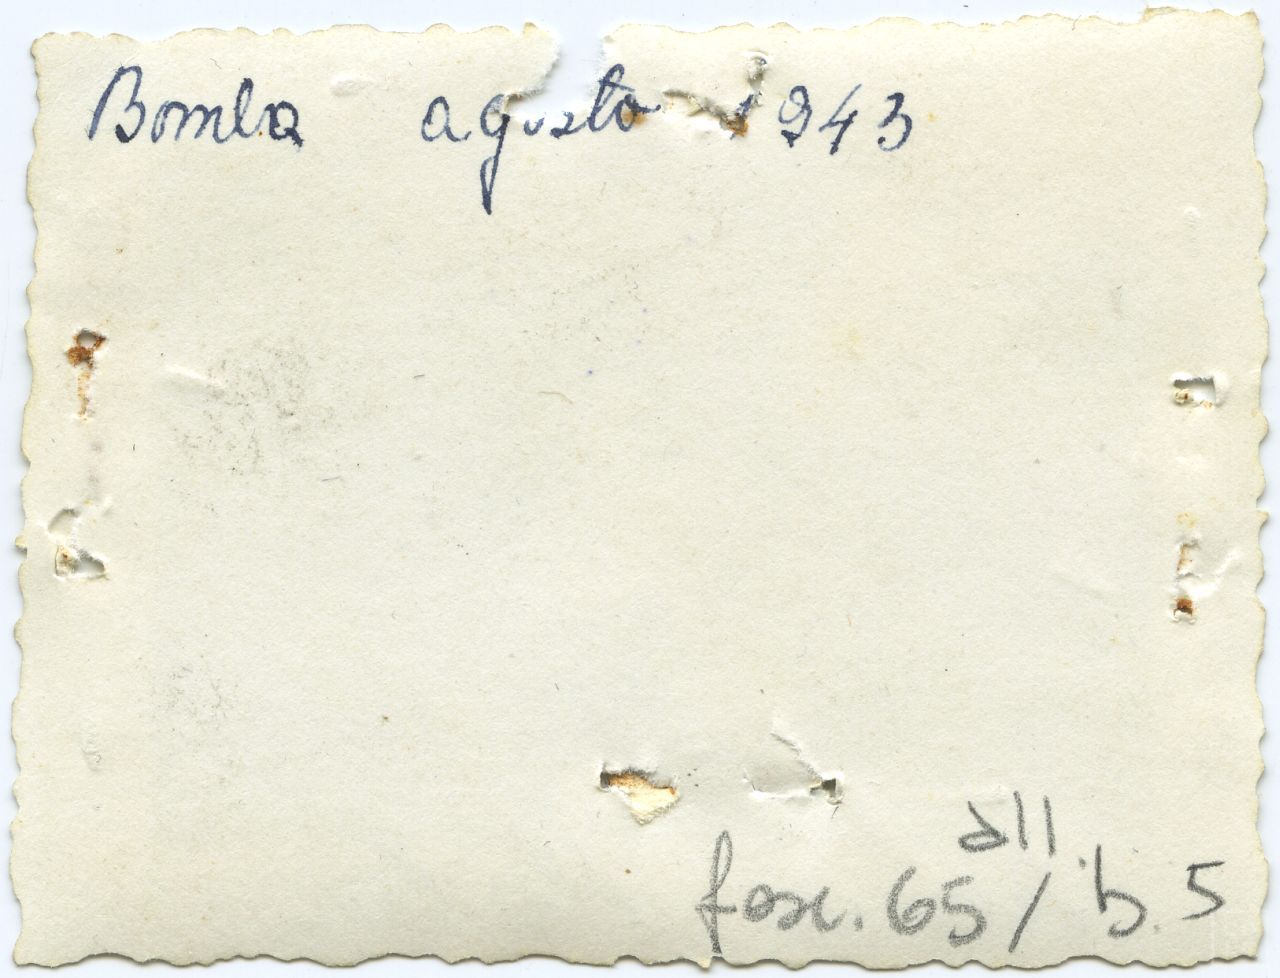 Bomba agosto 1943
all
fasc. 65 / b. 5